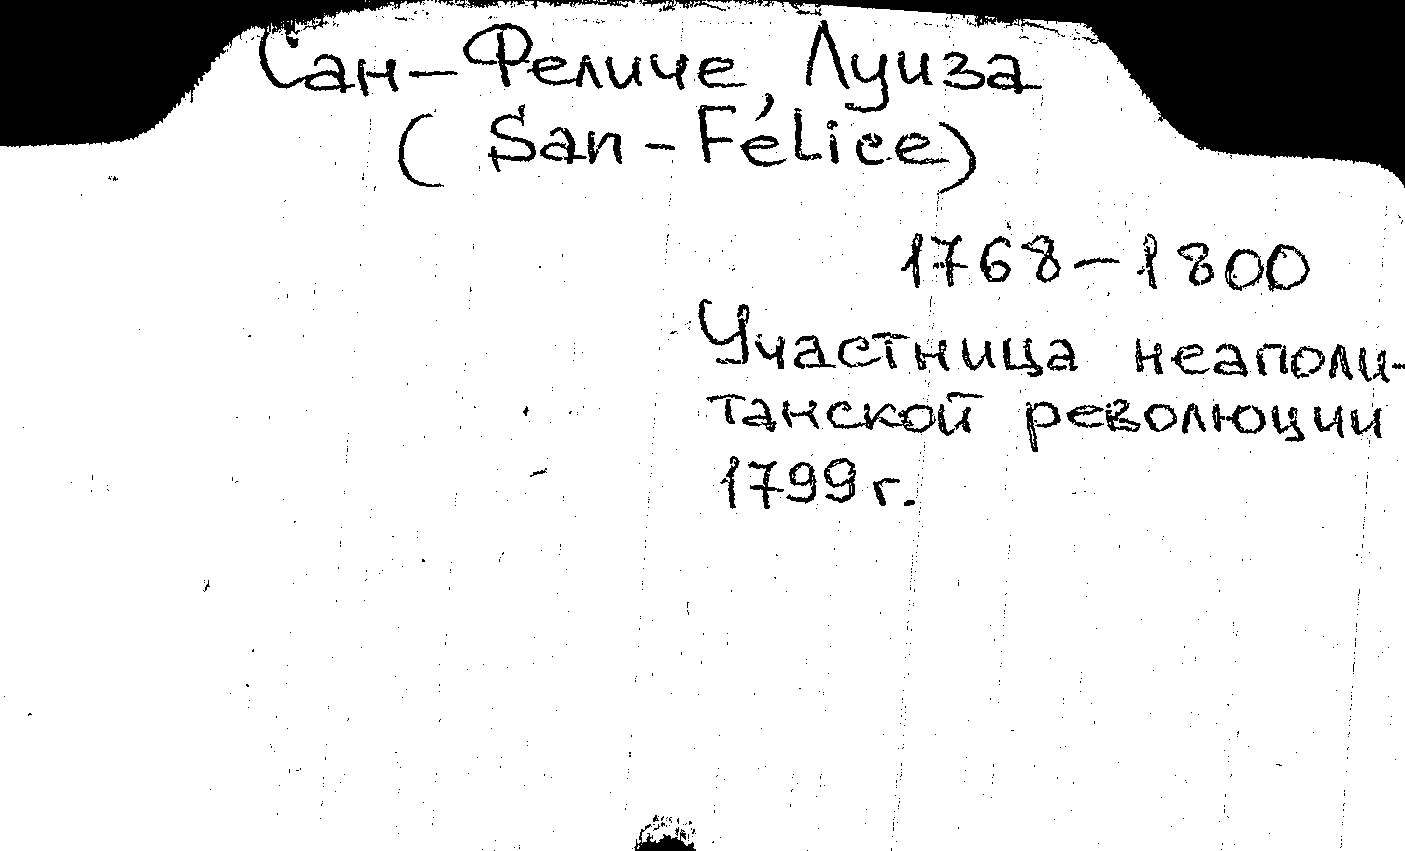 Сан-Феличе, Луиза
(San-Félice)
1768-1800
Участница неаполи-
танской революции
1799 г.